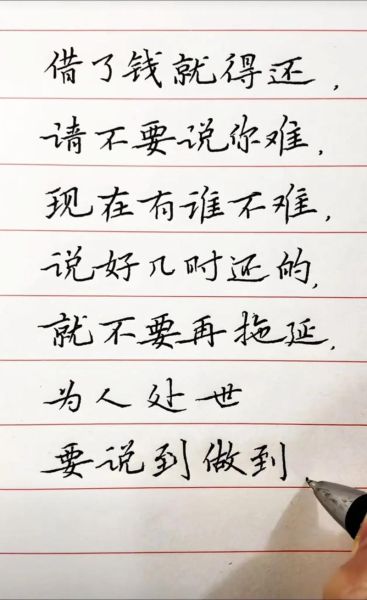 借了钱就得还，
请不要说你难，
现在有谁不难，
说好几时还的，
就不要再拖延，
为人处世
要说到做到